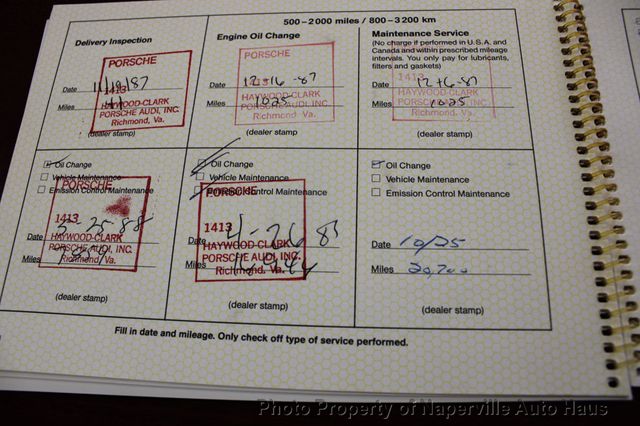 500-2000 miles / 800-3200 km
Delivery Inspection
PORSCHE
Date 11/19/87
1413
Miles
HAYWOOD-CLARK
PORSCHE AUDI, INC.
Richmond, Va.
(dealer stamp)
Engine Oil Change
PORSCHE
Date 12-16-87
HAYWOOD-CLARK
Miles 1025
PORSCHE AUDI, INC.
Richmond, Va.
(dealer stamp)
Maintenance Service
(No charge if performed in U.S.A. and
Canada and within prescribed mileage
intervals. You only pay for lubricants,
filters and gaskets)
1413
Date 12-16-87
HAYWOOD-CLARK
Miles 1025
PORSCHE AUDI, INC.
Richmond, Va.
(dealer stamp)
Oil Change
Vehicle Maintenance
Emission Control Maintenance
PORSCHE
1413
Date
HAYWOOD-CLARK
PORSCHE AUDI, INC.
Miles
Richmond, Va.
(dealer stamp)
Oil Change
Vehicle Maintenance
Emission Control Maintenance
PORSCHE
1413
Date
HAYWOOD-CLARK
PORSCHE AUDI, INC.
Miles
Richmond, Va.
(dealer stamp)
Oil Change
Vehicle Maintenance
Emission Control Maintenance
Date 10/25
Miles 20,700
(dealer stamp)
Fill in date and mileage. Only check off type of service performed.
Photo Property of Naperville Auto Haus